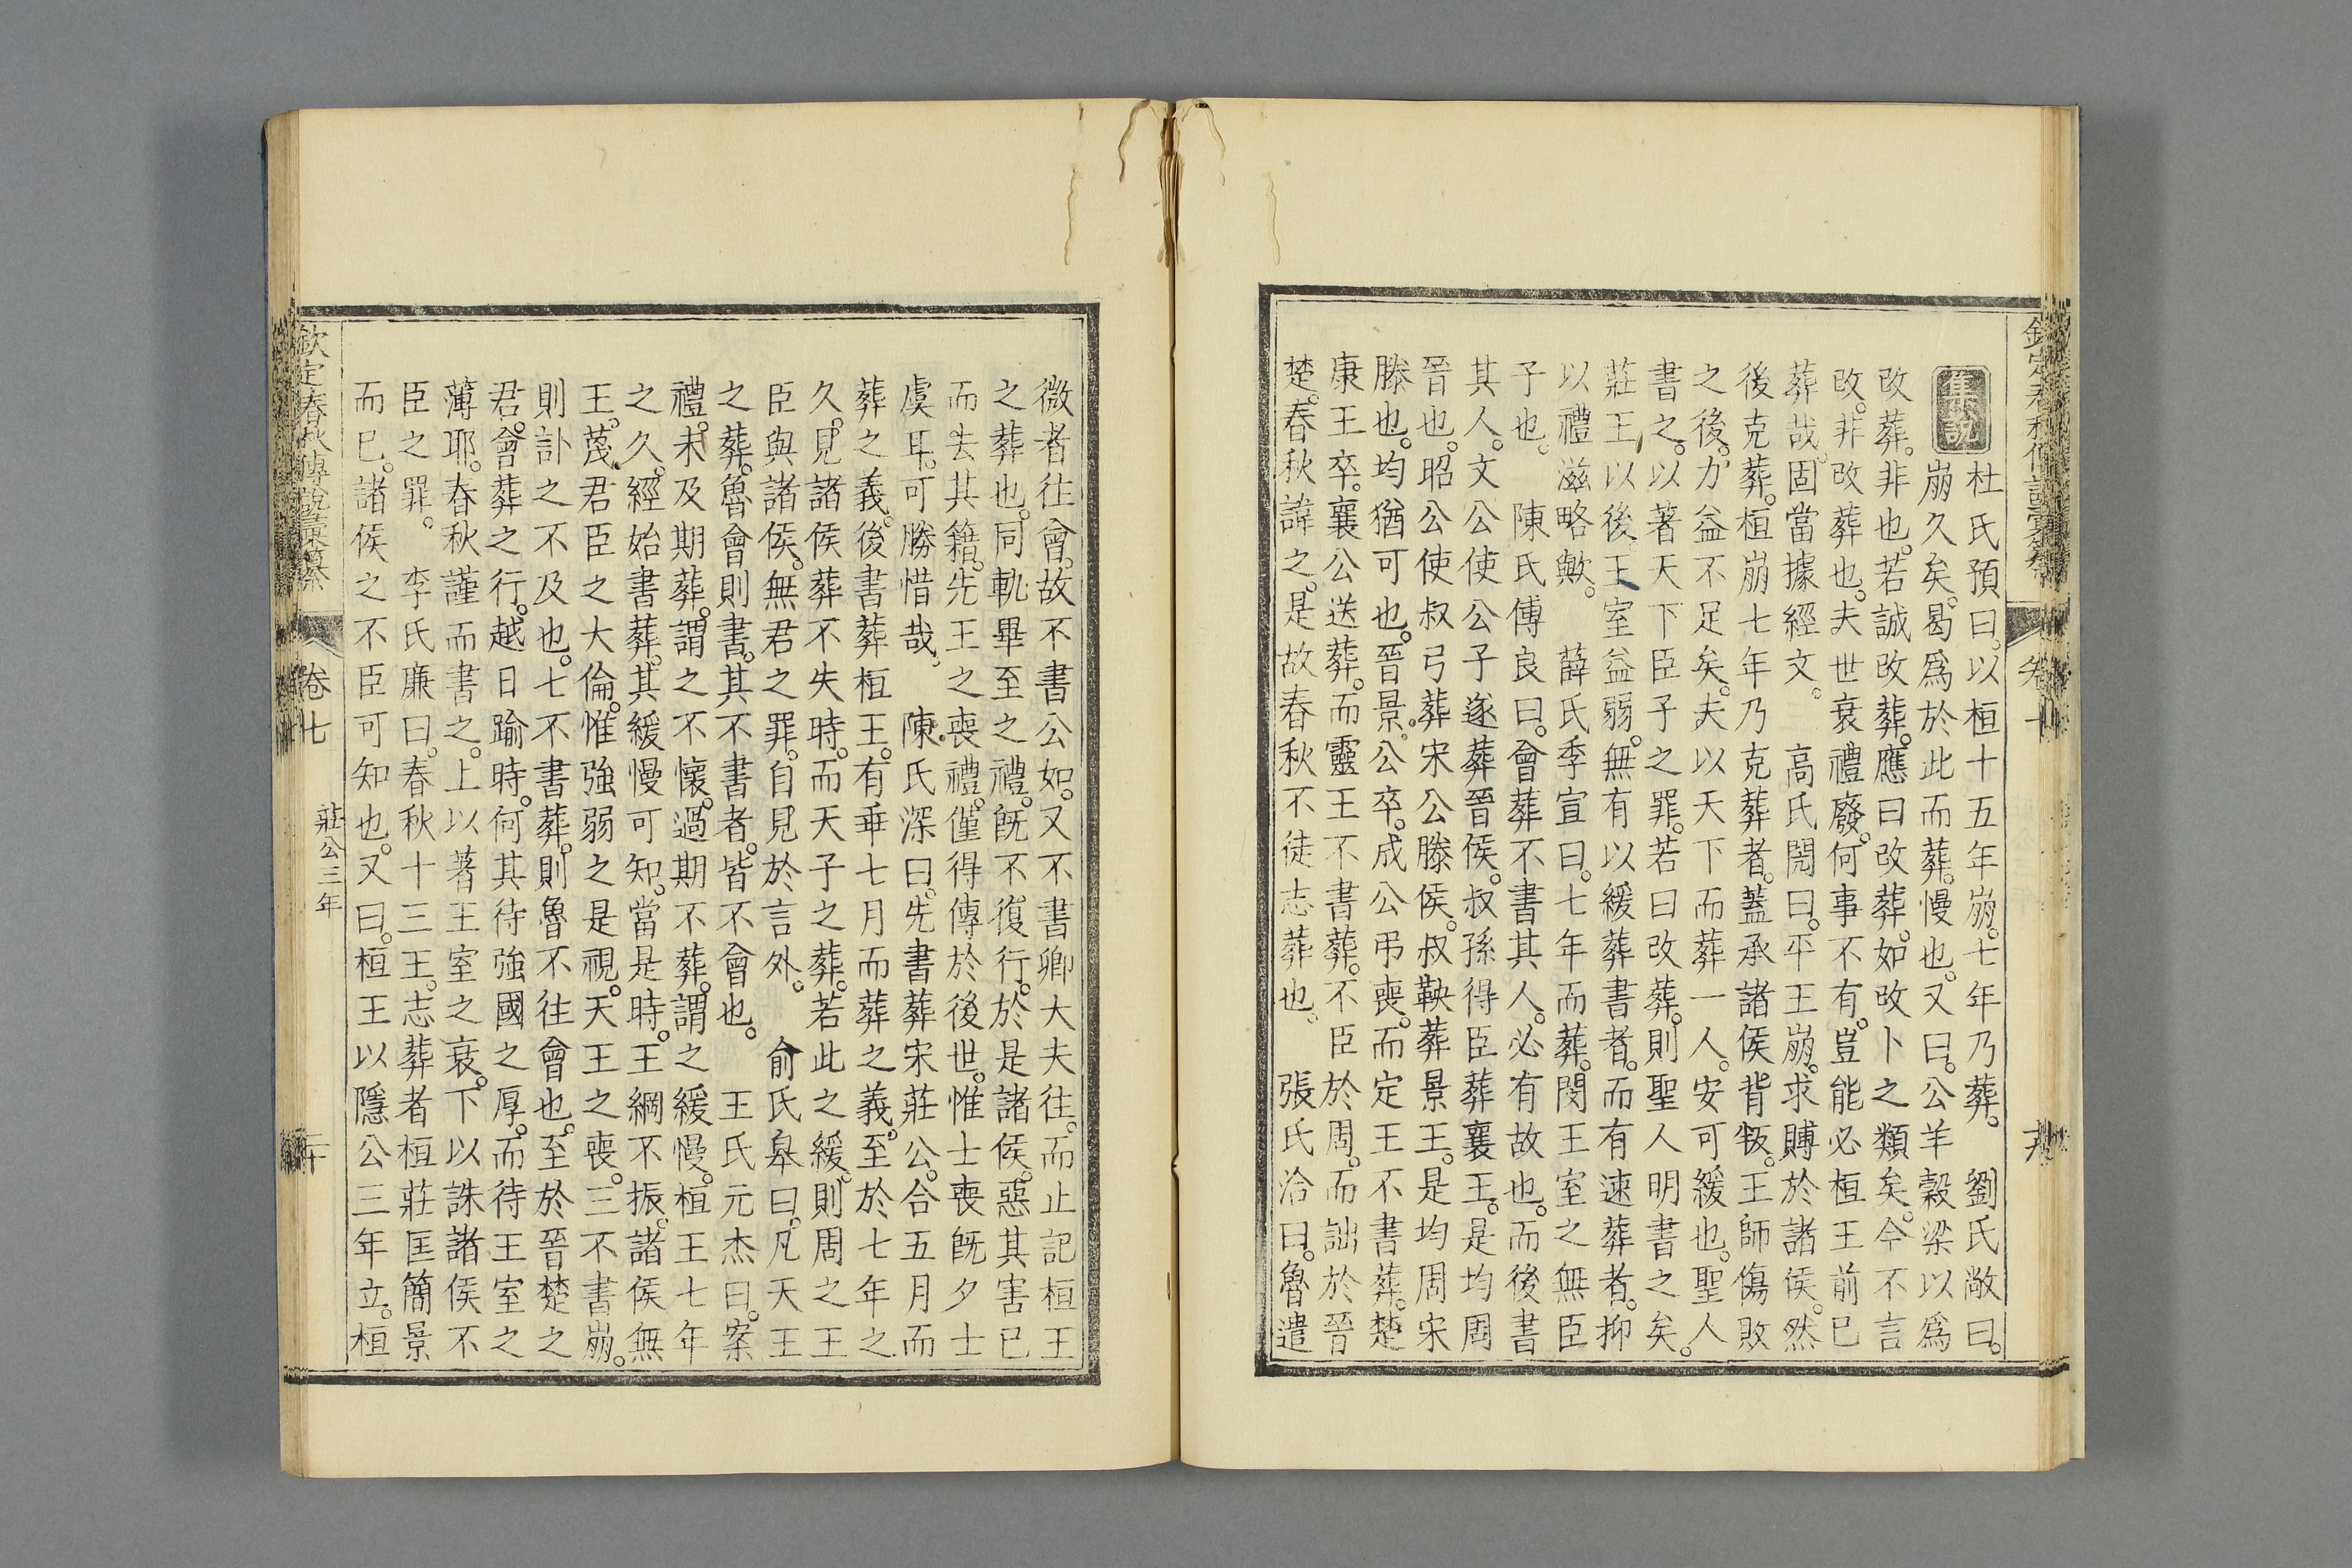 集說
杜氏預曰。以桓十五年崩。七年乃葬。　劉氏敞曰。
崩久矣。曷爲於此而葬。慢也。又曰。公羊穀梁以爲
改葬。非也。若誠改葬。應曰改葬。如改卜之類矣。今不言
改。非改葬也。夫世衰禮廢。何事不有。豈能必桓王前已
葬哉。固當據經文。　高氏閌曰。平王崩。求賻於諸侯。然
後克葬。桓崩七年乃克葬者。蓋承諸侯背叛。王師傷敗
之後。力益不足矣。夫以天下而葬一人。安可緩也。聖人
書之。以著天下臣子之罪。若曰改葬。則聖人明書之矣。
莊王以後。王室益弱。無有以緩葬書者。而有速葬者。抑
以禮滋略歟。　薛氏季宣曰。七年而葬。閔王室之無臣
子也。　陳氏傅良曰。會葬不書其人。必有故也。而後書
其人。文公使公子遂葬晉侯。叔孫得臣葬襄王。是均周
晉也。昭公使叔弓葬宋公滕侯。叔鞅葬景王。是均周宋
滕也。均猶可也。晉景公卒。成公弔喪。而定王不書葬。楚
康王卒。襄公送葬。而靈王不書葬。不臣於周。而詘於晉
楚。春秋諱之。是故春秋不徒志葬也。　張氏洽曰。魯遣
微者往會。故不書公如。又不書卿大夫往。而止記桓王
之葬也。同軌畢至之禮。旣不復行。於是諸侯。惡其害已
而去其籍。先王之喪禮。僅得傳於後世。惟士喪旣夕士
虞耳。可勝惜哉。　陳氏深曰。先書葬宋莊公。合五月而
葬之義。後書葬桓王。有乖七月而葬之義。至於七年之
久。見諸侯葬不失時。而天子之葬。若此之緩。則周之王
臣與諸侯。無君之罪。自見於言外。　俞氏皋曰。凡天王
之葬。魯會則書。其不書者。皆不會也。　王氏元杰曰。案
禮。未及期葬。謂之不懷。過期不葬。謂之緩慢。桓王七年
之久。經始書葬。其緩慢可知。當是時。王綱不振。諸侯無
王。蔑君臣之大倫。惟強弱之是視。天王之喪。三不書崩。
則訃之不及也。七不書葬。則魯不往會也。至於晉楚之
君。會葬之行。越日踰時。何其待強國之厚。而待王室之
薄耶。春秋謹而書之。上以著王室之衰。下以誅諸侯不
臣之罪。　李氏廉曰。春秋十三王。志葬者桓莊匡簡景
而已。諸侯之不臣可知也。又曰。桓王以隱公三年立。桓
欽定春秋傳說彙纂　卷七　莊公三年　二十